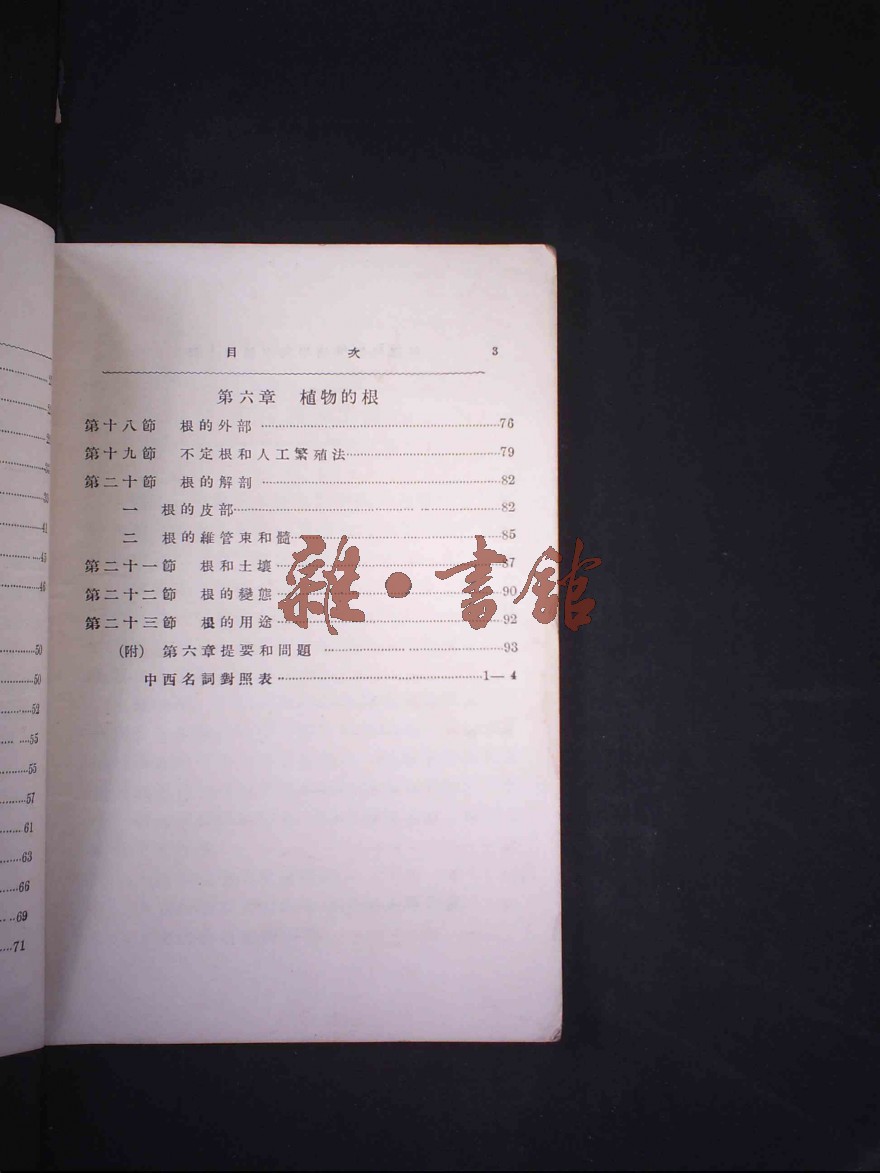 目 次 3
第六章 植物的根
第十八節 根的外部 76
第十九節 不定根和人工繁殖法 79
第二十節 根的解剖 82
一 根的皮部 82
二 根的維管束和髓 85
第二十一節 根和土壤 87
第二十二節 根的變態 90
第二十三節 根的用途 92
(附) 第六章提要和問題 93
中西名詞對照表 1—4
雜·書館
41
46
50
50
52
55
55
57
61
63
66
69
71